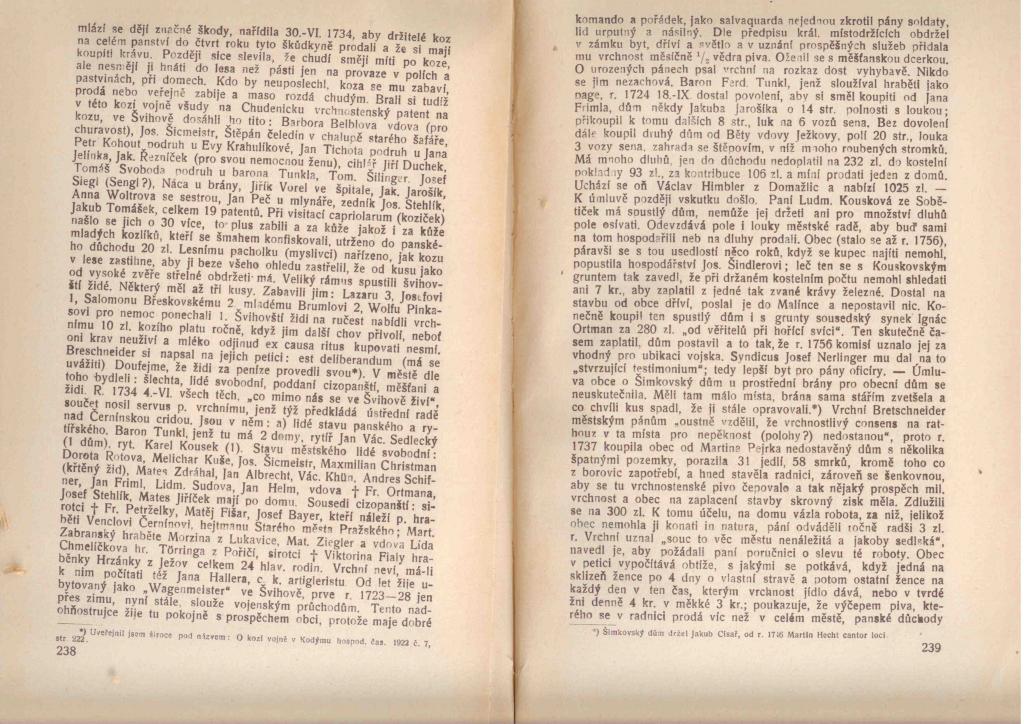 mlází se ději značné škody, nařídila 30.-VI. 1734, aby držitelé koz
na celém panství do čtvrt roku tyto škůdkyně prodali a že si mají
koupiti krávu. Později sice slevila, že chudí smějí míti po koze,
ale nesmějí ji hnáti do lesa než pásti jen na provaze v polích a
pastvinách, při domech. Kdo by neuposlechl, koza se mu zabaví,
prodá nebo veřejně zabije a maso rozdá chudým. Brali si tudíž
v této kozí vojně všudy na Chudenicku vrchnostenský patent na
kozu, ve Švihově dosáhli ho tito: Barbora Belblova vdova (pro
churavost), Jos. Šicmeistr, Štěpán čeledín v chalupě starého šafáře,
Petr Kohout podruh u Evy Krahulíkové, Jan Tichota podruh u Jana
Jelínka, Jak. Řezníček (pro svou nemocnou ženu), cihlář Jiří Duchek,
Tomáš Svoboda podruh u barona Tunkla, Tom. Šilinger. Josef
Siegl (Sengl?), Náca u brány, Jiřík Vorel ve špitale, Jak. Jarošík,
Anna Woltrova se sestrou, Jan Peč u mlynáře, zedník Jos. Stehlík,
Jakub Tomášek, celkem 19 patentů. Při visitací capriolarum (koziček)
našlo se jich o 30 více, to plus zabili a za kůže jakož i za kůže
mladých kozlíků, kteří se šmahem konfiskovali, utrženo do panské-
ho důchodu 20 zl. Lesnímu pacholku (myslivci) nařízeno, jak kozu
v lese zastihne, aby ji beze všeho ohledu zastřelil, že od kusu jako
od vysoké zvěře střelné obdržeti má. Veliký rámus spustili švihov-
ští židé. Některý měl až tři kusy. Zabavili jim: Lazaru 3, Josefovi
1, Salomonu Břeskovskému 2, mladému Brumlovi 2, Wolfu Pinka-
sovi pro nemoc ponechali 1. Švihovští židi na ručest nabídli vrch-
nímu 10 zl. kozího platu ročně, když jim další chov přivolí, neboť
oni krav neuživí a mléko odjinud ex causa ritus kupovati nesmí.
Breschneider si napsal na jejich petici: est deliberandum (má se
uvážiti) Doufejme, že židi za peníze provedli svou*). V městě dle
toho bydleli: šlechta, lidé svobodní, poddaní cizopanští, měšťani a
židi. R. 1734 4.-VI. všech těch, „co mimo nás se ve Švihově živí“,
součet nosil servus p. vrchnímu, jenž týž předkládá ústřední radě
nad Černínskou cridou. Jsou v něm: a) lidé stavu panského a ry-
tířského. Baron Tunkl, jenž tu má 2 domy, rytíř Jan Vác. Sedlecký
(1 dům), ryt. Karel Kousek (1). Stavu městského lidé svobodní:
Dorota Rotova, Melichar Kuše, Jos. Šicmeistr, Maxmilian Christman
(křtěný žid), Mates Zdráhal, Jan Albrecht, Vác. Khün, Andres Schif-
ner, Jan Friml, Lidm. Sudova, Jan Helm, vdova † Fr. Ortmana,
Josef Stehlík, Mates Jiříček mají po domu. Sousedi cizopanští: si-
rotci † Fr. Petržełky, Matěj Fišar, Josef Bayer, kteří náleží p. hra-
běti Venclovi Černínovi, hejtmanu Starého města Pražského; Mart.
Zabranský hraběte Morzina z Lukavice, Mat. Ziegler a vdova Lida
Chmelíčkova hr. Törringa z Poříčí, sirotci † Viktorina Fialy hra-
běnky Hrzánky z Ježov celkem 24 hlav. rodin. Vrchní neví, má-li
k nim počítati též Jana Hallera, c. k. artigleristu. Od let žije u-
bytovaný jako „Wagenmeister“ ve Švihově, prve r. 1723—28 jen
přes zimu, nyní stále, slouže vojenským průchodům. Tento nad-
ohňostrujce žije tu pokojně s prospěchem obci, protože maje dobré
*) Uveřejnil jsem široce pod názvem: O kozí vojně v Kodýmu hospod. čas. 1922 č. 7,
str. 222.
238
komando a pořádek, jako salvaquarda nejednou zkrotil pány soldaty,
lid urputný a násilný. Dle předpisu král. místodržících obdržel
v zámku byt, dříví a světlo a v uznání prospěšných služeb přidala
mu vrchnost měsíčně 1/2 vědra piva. Oženil se s měšťanskou dcerkou.
O urozených pánech psal vrchní na rozkaz dost vyhybavě. Nikdo
se jim nezachová. Baron Ferd. Tunkl, jenž sloužíval hraběti jako
page, r. 1724 18.-IX dostal povolení, aby si směl koupiti od Jana
Frimla, dům někdy Jakuba Jarošíka o 14 str. polností s loukou;
přikoupil k tomu dalších 8 str., luk na 6 vozů sena. Bez dovolení
dále koupil druhý dům od Běty vdovy Ježkovy, polí 20 str., louka
3 vozy sena, zahrada se štěpovím, v níž mnoho roubených stromků.
Má mnoho dluhů, jen do důchodu nedoplatil na 232 zl. do kostelní
pokladny 93 zl., za kontribuce 106 zl. a míní prodati jeden z domů.
Uchází se oň Václav Himbler z Domažlic a nabízí 1025 zl. —
K úmluvě později vskutku došlo. Paní Ludm. Kousková ze Sobě-
tiček má soustlý dům, nemůže jej držeti ani pro množství dluhů
pole osívati. Odevzdává pole i louky městské radě, aby buď sami
na tom hospodařili neb na dluhy prodali. Obec (stalo se až r. 1756),
páravši se s tou usedlostí něco roků, když se kupec najíti nemohl,
popustila hospodářství Jos. Šindlerovi; leč ten se s Kouskovským
gruntem tak zavedl, že při držaném kostelním počtu nemohl shledati
ani 7 kr., aby zaplatil z jedné tak zvané krávy železné. Dostal na
stavbu od obce dříví, poslal je do Malínce a nepostavil nic. Ko-
nečně koupil ten spustlý dům i s grunty sousedský synek Ignác
Ortman za 280 zl. „od věřitelů při hořící svíci“. Ten skutečně ča-
sem zaplatil, dům postavil a to tak, že r. 1756 komisí uznalo jej za
vhodný pro ubikaci vojska. Syndicus Josef Nerlinger mu dal na to
„stvrzující testimonium“; tedy lepší byt pro pány oficíry. — Úmlu-
va obce o Šimkovský dům u prostřední brány pro obecní dům se
neuskutečnila. Měli tam málo místa, brána sama stářím zvetšela a
co chvíli kus spadl, že ji stále opravovali.*) Vrchní Bretschneider
městským pánům „oustně vzdělil, že vrchnostlivý consens na rat-
houz v ta místa pro nepěknost (polohy?) nedostanou“, proto r.
1737 koupila obec od Martina Pejrka nedostavěný dům s několika
špatnými pozemky, porazila 31 jedlí, 58 smrků, kromě toho co
z borovic zapotřebí, a hned stavěla radnici, zároveň se šenkovnou,
aby se tu vrchnostenské pivo čepovalo a tak nějaký prospěch mil.
vrchnost a obec na zaplacení stavby skrovný zisk měla. Zdlužili
se na 300 zl. K tomu účelu, na domu vázla robota, za niž, jelikož
obec nemohla ji konati in natura, páni odváděli ročně radši 3 zl.
r. Vrchní uznal „souc to věc městu nenáležitá a jakoby sedlská“,
navedl je, aby požádali paní poručnici o slevu té roboty. Obec
v petici vypočítává obtíže, s jakými se potkává, když jedná na
sklizeň žence po 4 dny o vlastní stravě a potom ostatní žence na
každý den v ten čas, kterým vrchnost jídlo dává, nebo v tvrdé
žni denně 4 kr. v měkké 3 kr.; poukazuje, že výčepem piva, kte-
rého se v radnici prodá víc než v celém městě, panské důchody
*) Šimkovský dům držel Jakub Císař, od r. 1746 Martin Hecht cantor loci
239